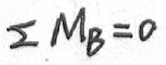 Σ M_B = 0